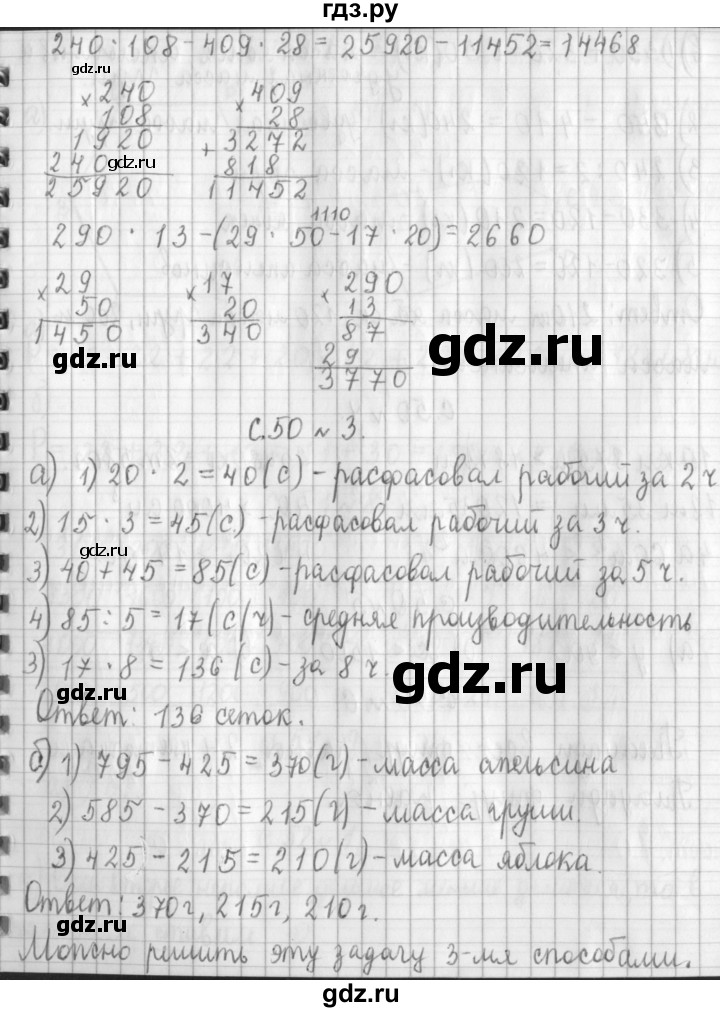 гдз.ру
240 · 108 - 409 · 28 = 25920 - 11452 = 14468
gdz.ru
× 240
108
1920
240
25920
gdz.ru
× 409
28
+ 3272
818
11452
1110
290 · 13 - (29 · 50 - 17 · 20) = 2660
× 29
50
1450
× 17
20
340
× 290
13
87
29
3770
gdz.ru
gdz.ru
С.50 № 3.
а) 1) 20 · 2 = 40 (с) - расфасовал рабочий за 2 ч
2) 15 · 3 = 45 (с.) - расфасовал рабочий за 3 ч.
gdz.ru
3) 40 + 45 = 85 (с) - расфасовал рабочий за 5 ч.
4) 85 : 5 = 17 (с/ч) - средняя производительность
3) 17 · 8 = 136 (с) - за 8 ч.
gdz.ru
gdz.ru
Ответ: 136 сеток.
б) 1) 795 - 425 = 370 (г) - масса апельсина
2) 585 - 370 = 215 (г) - масса груши.
gdz.ru
3) 425 - 215 = 210 (г) - масса яблока.
gdz.ru
Ответ: 370 г, 215 г, 210 г.
gdz.ru
Можно решить эту задачу 3-мя способами.
gdz.ru